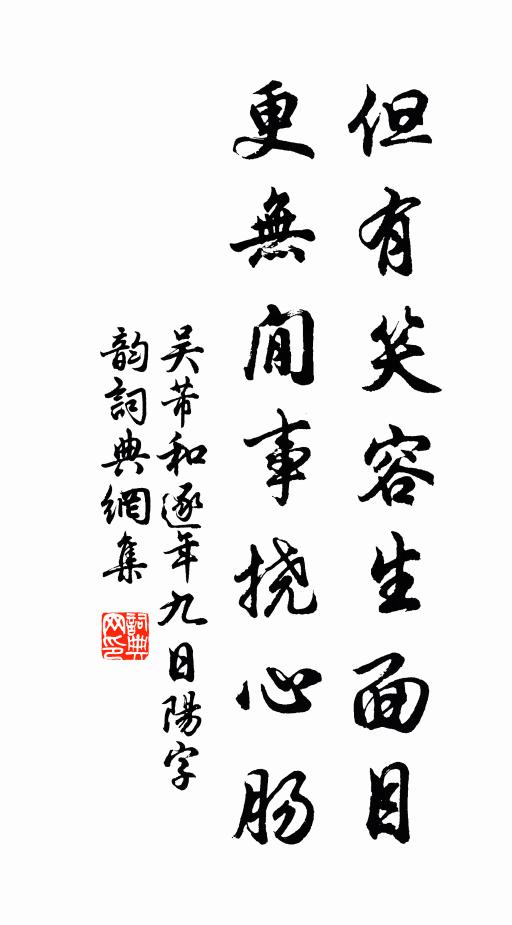 但有笑容生面目
更無閒事挠心肠
吴芾和逐年九日陽字
韵詞典網集
詞典网印